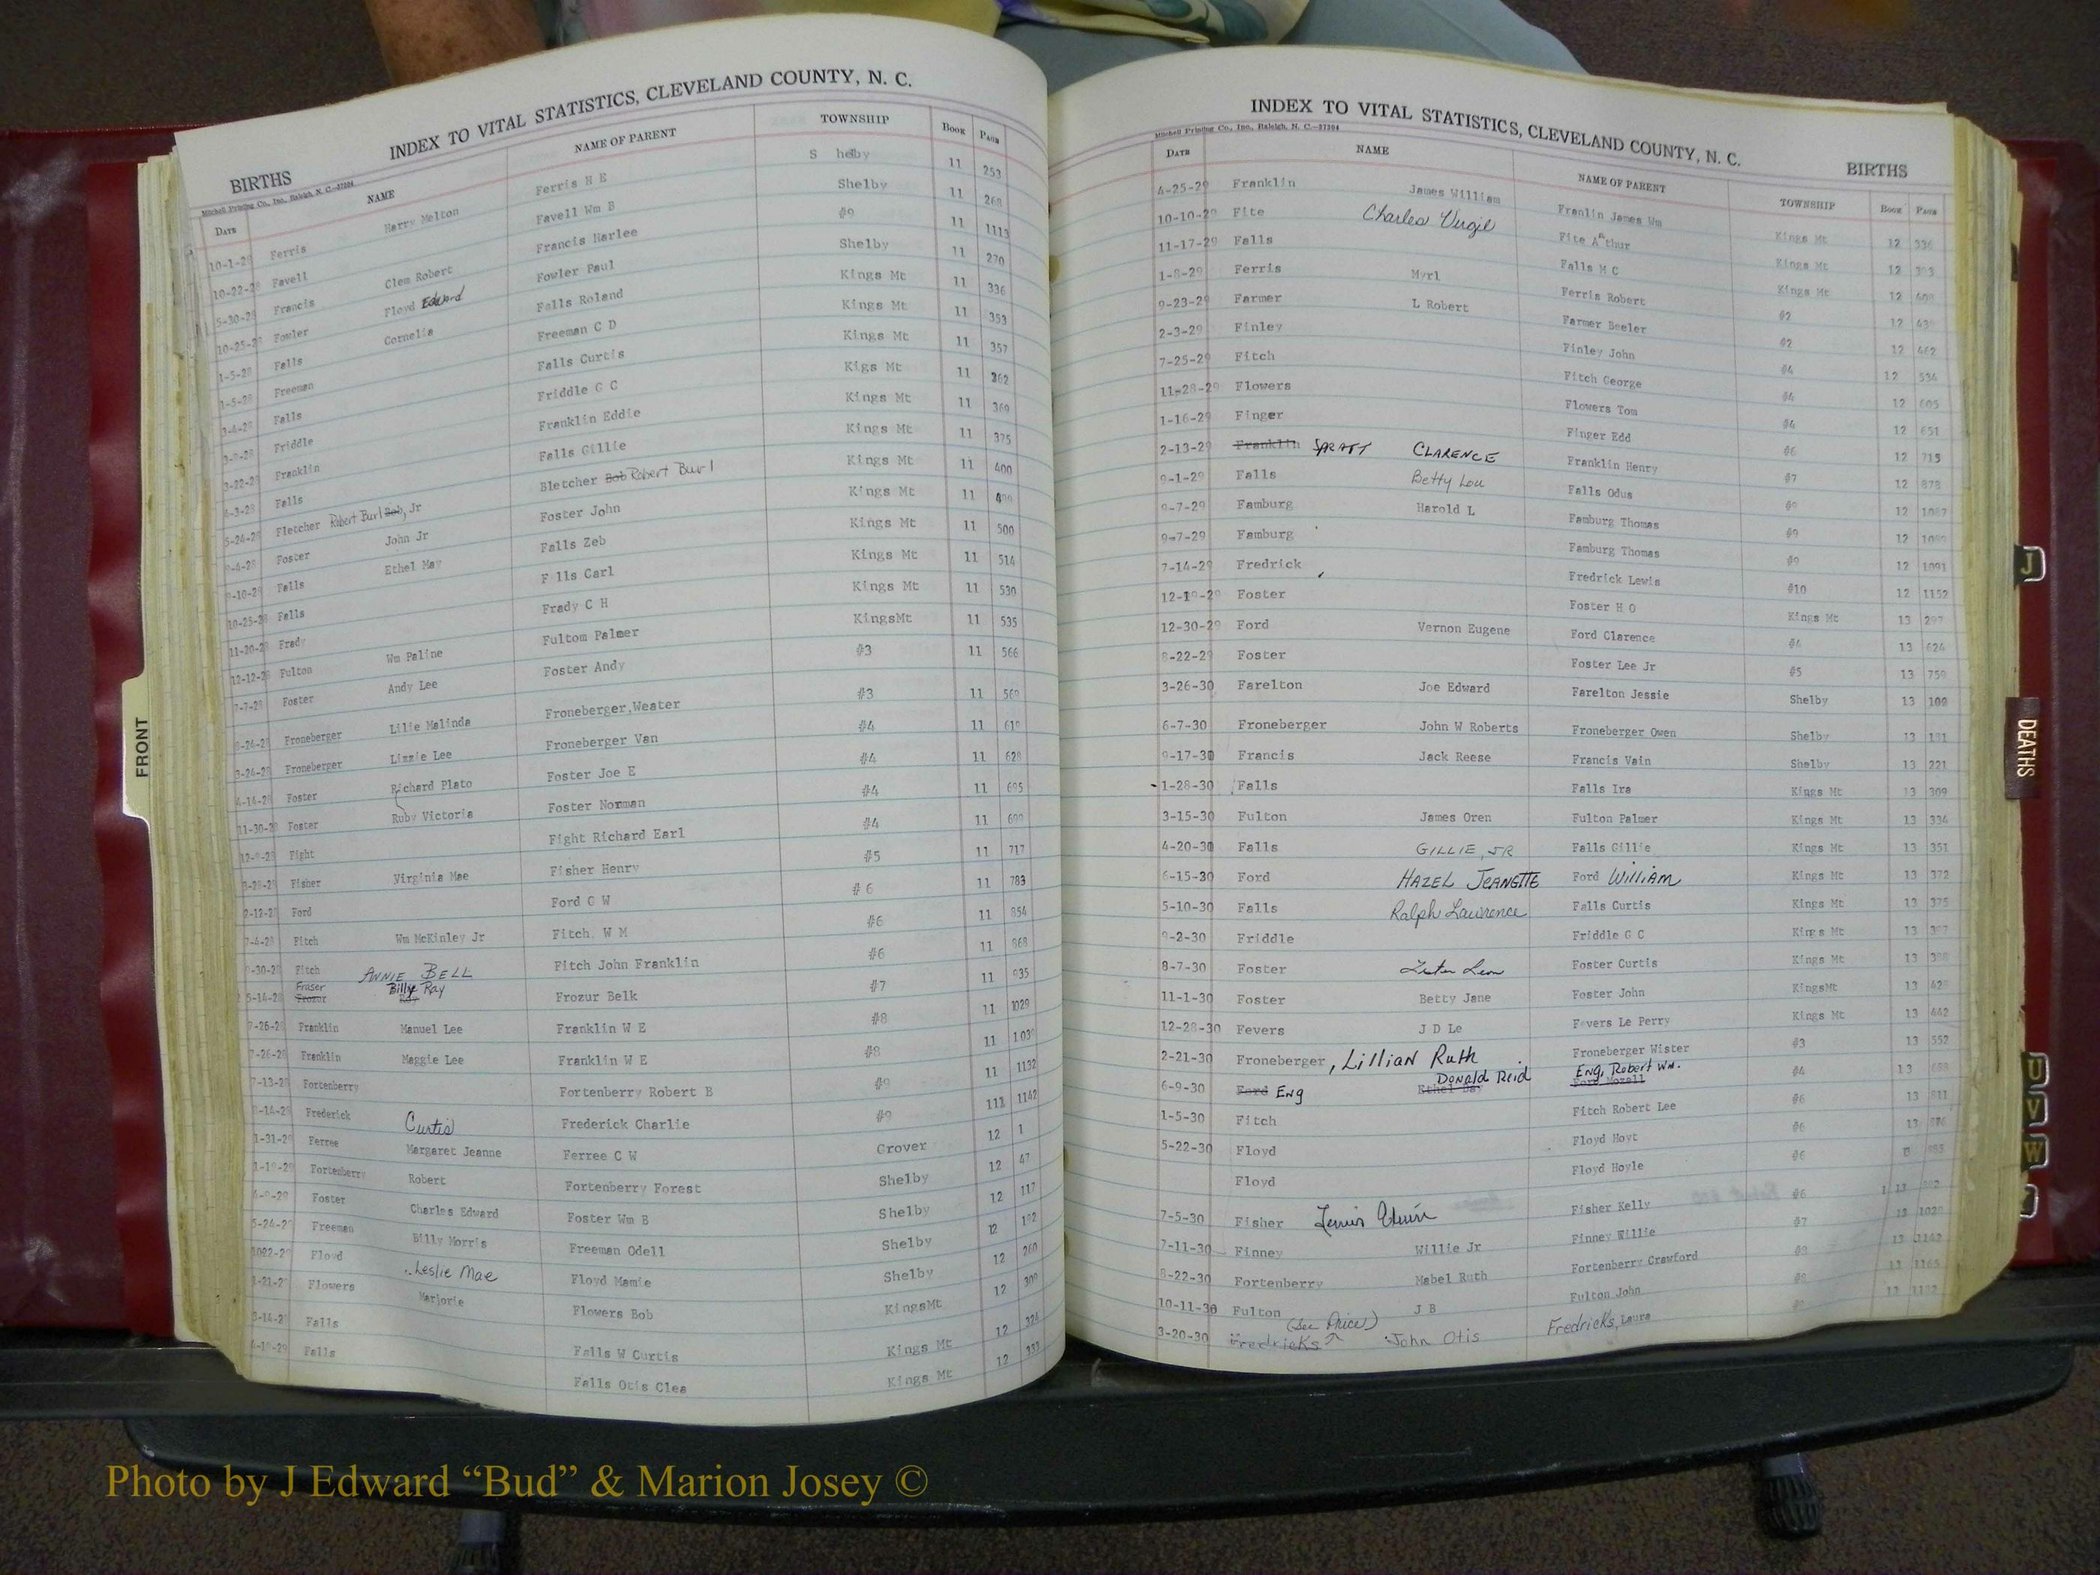 INDEX TO VITAL STATISTICS, CLEVELAND COUNTY, N. C.
BIRTHS
Mitchell Printing Co., Inc., Raleigh, N. C.—37204
DATE NAME NAME OF PARENT TOWNSHIP BOOK PAGE
10-1-28 Ferris Harry Melton Ferris H E S helby 11 253
10-22-28 Favell Favell Wm B Shelby 11 268
5-30-28 Francis Clem Robert Francis Harlee #9 11 1113
10-25-28 Fowler Floyd Edward Fowler Paul Shelby 11 270
1-5-28 Falls Cornelia Falls Roland Kings Mt 11 336
1-5-28 Freeman Freeman C D Kings Mt 11 353
3-4-28 Falls Falls Curtis Kings Mt 11 357
3-9-28 Friddle Friddle G C Kigs Mt 11 362
3-22-28 Franklin Franklin Eddie Kings Mt 11 369
4-3-28 Falls Falls Gillie Kings Mt 11 375
5-24-28 Fletcher Robert Burl Bob, Jr Bletcher Bob Robert Burl Kings Mt 11 400
9-4-28 Foster John Jr Foster John Kings Mt 11
9-10-28 Falls Ethel May Falls Zeb Kings Mt 11 500
10-25-28 Falls F lls Carl Kings Mt 11 514
11-20-28 Frady Frady C H Kings Mt 11 530
12-12-28 Fulton Wm Paline Fultom Palmer KingsMt 11 535
7-7-28 Foster Andy Lee Foster Andy #3 11 566
8-24-28 Froneberger Lilie Malinda Froneberger,Weater #3 11 569
3-24-28 Froneberger Lizzie Lee Froneberger Van #4 11 619
4-14-28 Foster Richard Plato Foster Joe E #4 11 628
11-30-28 Foster Ruby Victoria Foster Norman #4 11 695
12-9-28 Fight Fight Richard Earl #4 11 699
3-28-28 Fisher Virginia Mae Fisher Henry #5 11 717
2-12-28 Ford Ford G W # 6 11 783
7-4-28 Fitch Wm McKinley Jr Fitch W M #6 11 854
9-30-28 Fitch ANNIE BELL Fitch John Franklin #6 11 868
Fraser
5-14-28 Frozur Billy Ray Frozur Belk #7 11 935
7-26-28 Franklin Manuel Lee Franklin W E #8 11 1029
7-26-28 Franklin Maggie Lee Franklin W E #8 11 1030
7-13-28 Fortenberry Fortenberry Robert B #9 11 1132
8-14-28 Frederick Curtis Frederick Charlie #9 111 1142
1-31-29 Ferree Margaret Jeanne Ferree C W Grover 12 1
1-19-29 Fortenberry Robert Fortenberry Forest Shelby 12 47
4-9-29 Foster Charles Edward Foster Wm B Shelby 12 117
5-24-29 Freeman Billy Morris Freeman Odell Shelby 12 192
1022-29 Floyd Leslie Mae Floyd Mamie Shelby 12 260
1-21-29 Flowers Marjorie Flowers Bob KingsMt 12 309
3-14-29 Falls Falls W Curtis Kings Mt 12 324
4-19-29 Falls Falls Otis Clea Kings Mt 12 333
INDEX TO VITAL STATISTICS, CLEVELAND COUNTY, N. C.
BIRTHS
Mitchell Printing Co., Inc., Raleigh, N. C.—37204
DATE NAME NAME OF PARENT TOWNSHIP BOOK PAGE
4-25-29 Franklin James William Franlin James Wm Kings Mt 12 336
10-10-29 Fite Charles Virgil Fite Arthur Kings Mt 12 393
11-17-29 Falls Falls M C Kings Mt 12 408
1-8-29 Ferris Myrl Ferris Robert #2 12
9-23-29 Farmer L Robert Farmer Beeler #2 12 462
2-3-29 Finley Finley John #4 12 534
7-25-29 Fitch Fitch George #4 12 605
11-28-29 Flowers Flowers Tom #4 12 651
1-16-29 Finger Finger Edd #6 12 715
2-13-29 Franklin SPRATT CLARENCE Franklin Henry #7 12 878
9-1-29 Falls Betty Lou Falls Odus #9 12 1087
9-7-29 Famburg Harold L Famburg Thomas #9 12
9-7-29 Famburg Famburg Thomas #9 12 1091
7-14-29 Fredrick Fredrick Lewis #10 12 1152
12-19-29 Foster Foster H O Kings Mt 13 297
12-30-29 Ford Vernon Eugene Ford Clarence #4 13 624
8-22-29 Foster Foster Lee Jr #5 13 759
3-26-30 Farelton Joe Edward Farelton Jessie Shelby 13 109
6-7-30 Froneberger John W Roberts Froneberger Owen Shelby 13 191
9-17-30 Francis Jack Reese Francis Vain Shelby 13 221
1-28-30 Falls Falls Ira Kings Mt 13 309
3-15-30 Fulton James Oren Fulton Palmer Kings Mt 13 334
4-20-30 Falls GILLIE, JR Falls Gillie Kings Mt 13 351
6-15-30 Ford HAZEL JEANETTE Ford William Kings Mt 13 372
5-10-30 Falls Ralph Lawrence Falls Curtis Kings Mt 13 375
9-2-30 Friddle Friddle G C Kings Mt 13
8-7-30 Foster Foster Curtis Kings Mt 13
11-1-30 Foster Betty Jane Foster John KingsMt 13
12-28-30 Fevers J D Le Fevers Le Perry Kings Mt 13 442
2-21-30 Froneberger, Lillian Ruth Froneberger Wister #3 13 552
Donald Reid Eng, Robert Wm.
6-9-30 Ford Eng Ethel Ford Mozell #4 13
1-5-30 Fitch Fitch Robert Lee #6 13 811
5-22-30 Floyd Floyd Hoyt #6 13
Floyd Floyd Hoyle #6
7-5-30 Fisher Fisher Kelly #6 13
7-11-30 Finney Willie Jr Finney Willie #7 13
8-22-30 Fortenberry Mabel Ruth Fortenberry Crawford 13 1142
10-11-30 Fulton J B Fulton John 13 1165
(See Price)
3-20-30 Fredricks John Otis Fredricks, Laura
FRONT
J
DEATHS
U
V
W
Photo by J Edward “Bud” & Marion Josey ©